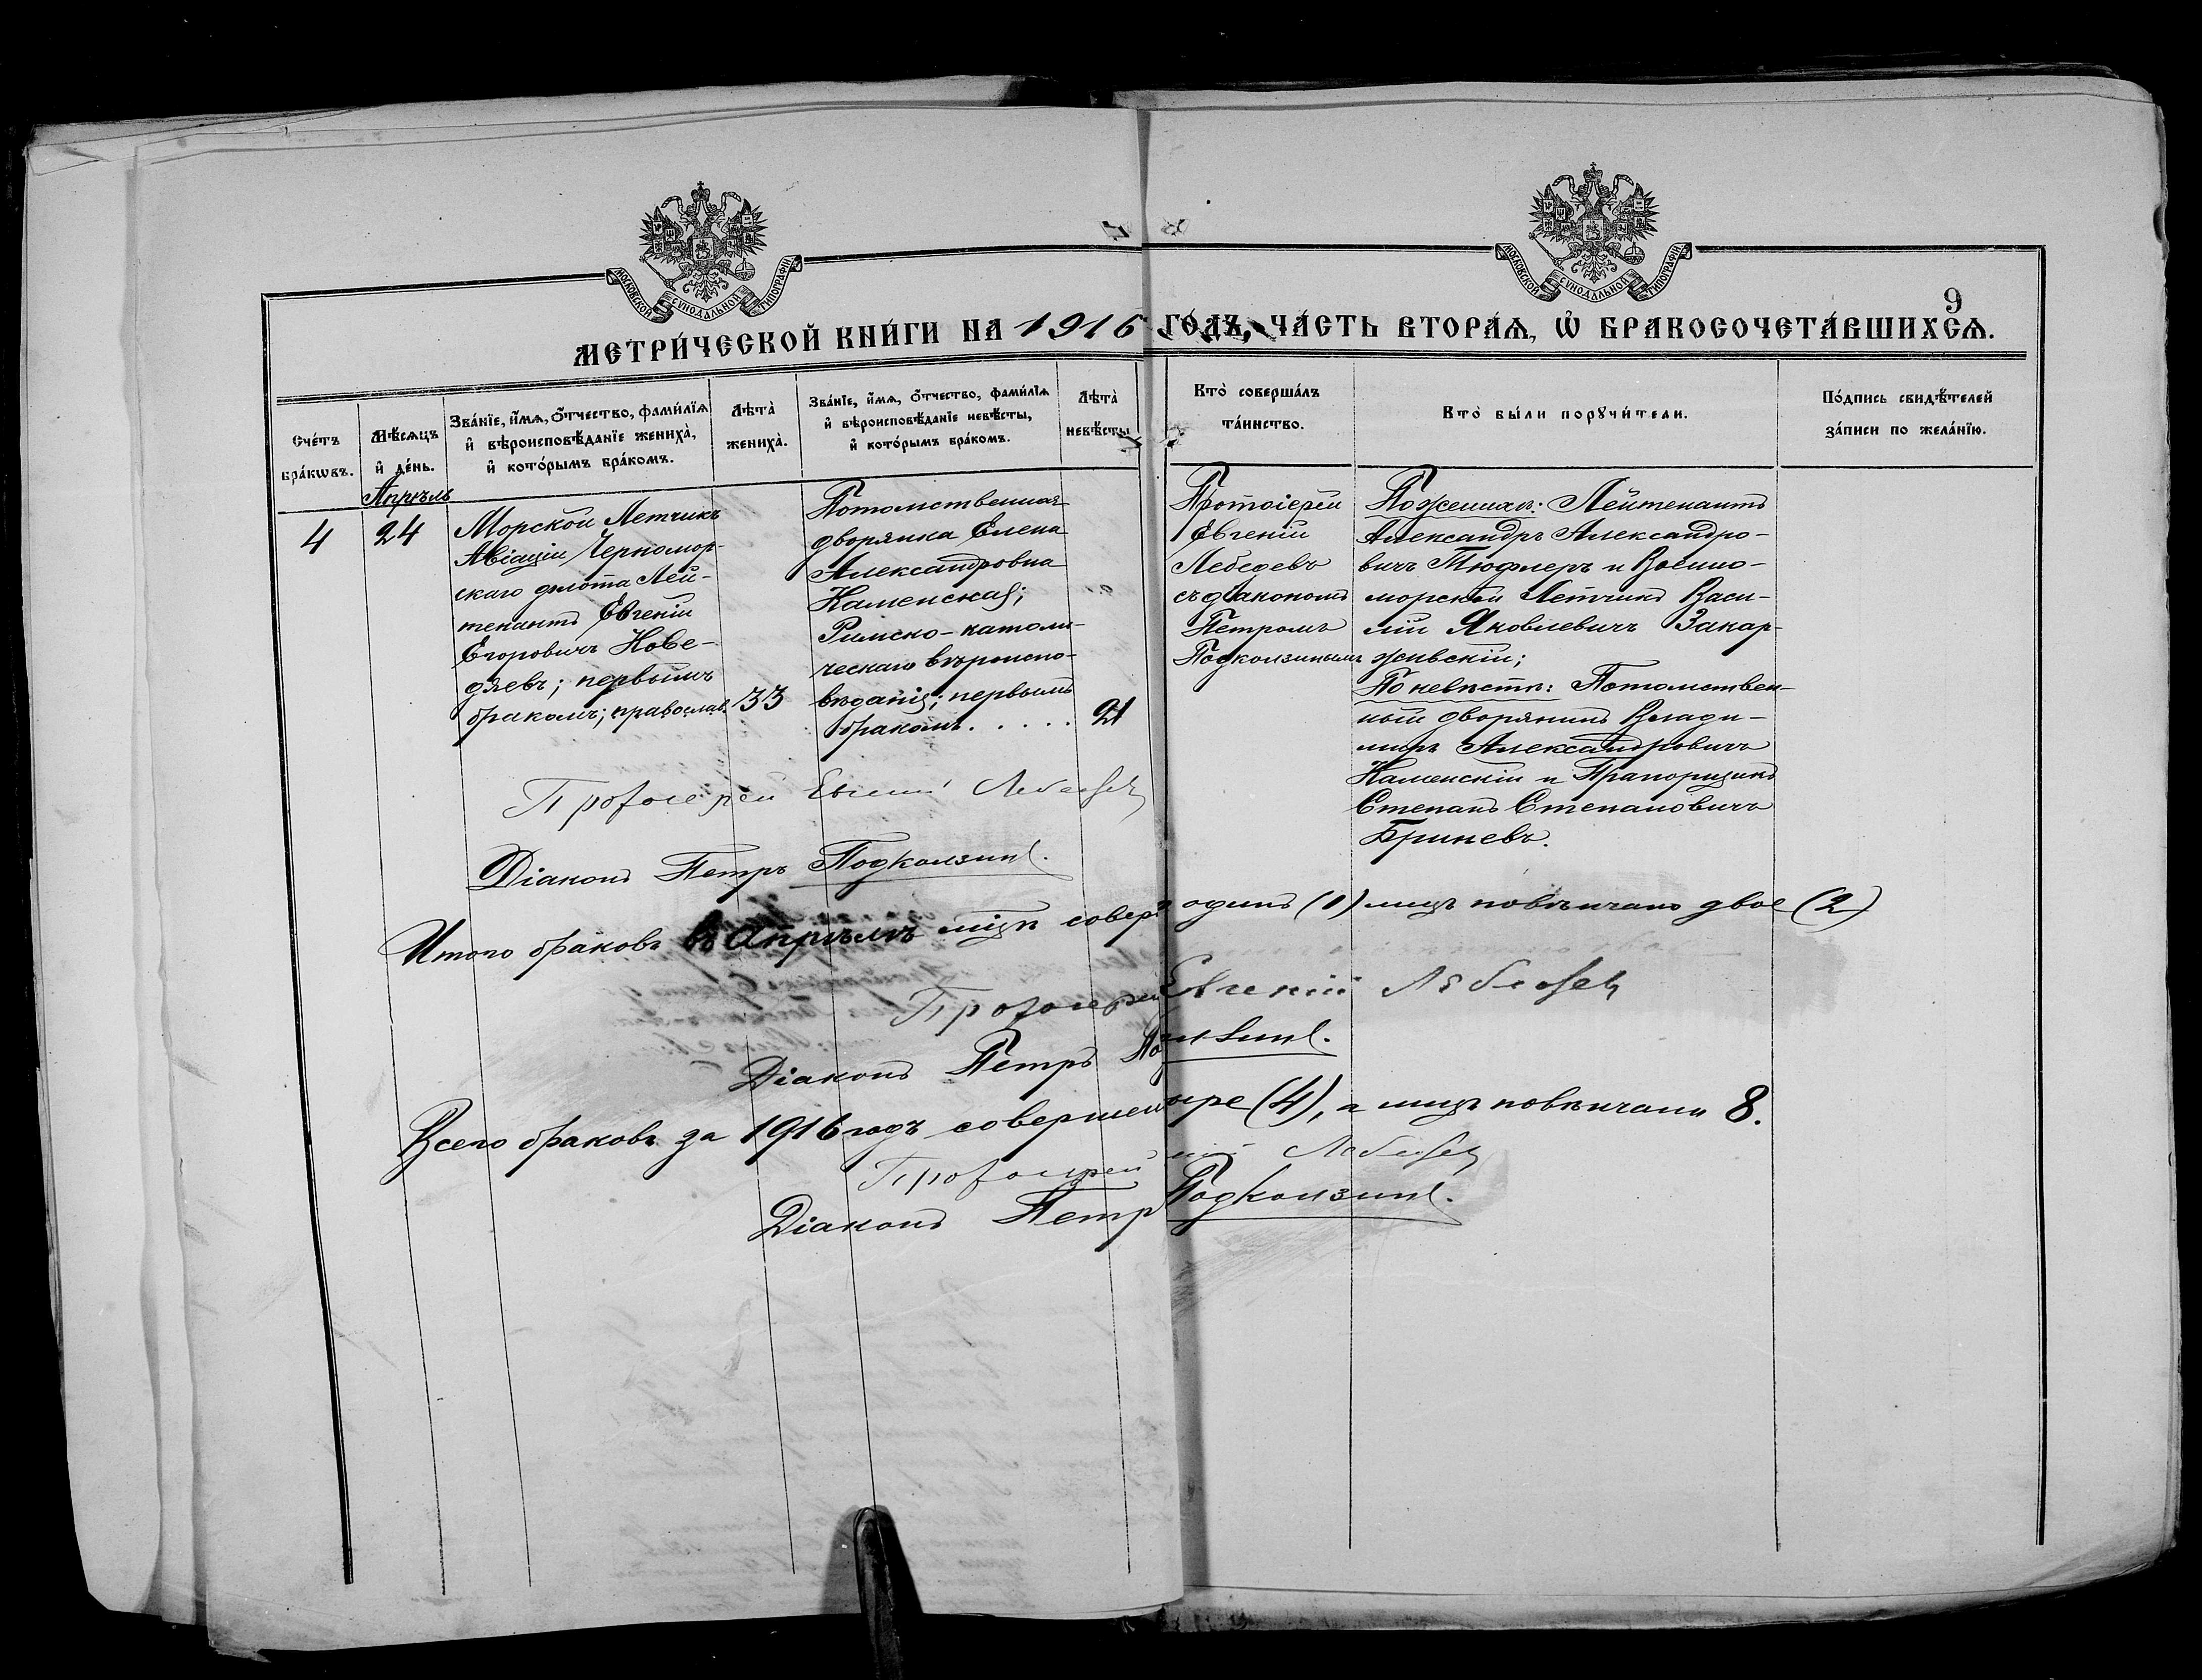 МОСКОВСКОЙ СѴНОДАЛЬНОЙ ТИПОГРАФІИ
МОСКОВСКОЙ СѴНОДАЛЬНОЙ ТИПОГРАФІИ
9
МЕТРИ́ЧЕСКОЙ КНИ́ГИ НА 1916 ГО́ДЪ, ЧА́СТЬ ВТОРА́Ѧ, Ѡ҆ БРАКОСОЧЕТА́ВШИХСѦ.
Сче́тъ
бра́кѡвъ.
Мѣ́сѧцъ
и҆ де́нь.
Зва́нїе, и҆́мѧ, о҆́тчество, фами́лїѧ
и҆ вѣроисповѣ́данїе жениха̀,
и҆ кото́рымъ бра́комъ.
Лѣта̀
жениха̀.
Зва́нїе, и҆́мѧ, о҆́тчество, фами́лїѧ
и҆ вѣроисповѣ́данїе невѣ́сты,
и҆ кото́рымъ бра́комъ.
Лѣта̀
невѣ́сты
Кто̀ соверша́лъ
та́инство.
Кто̀ бы́ли порꙋчи́тели.
По́дпись свидѣ́телей
за́писи по жела́нїю.
4
Апрѣль
24
Морской Летчикъ
Авіаціи Черномор-
скаго флота Лей-
тенантъ Евгеній
Егоровичъ Коведяевъ; первымъ
бракомъ; православ.
33
Потомственная
дворянка Елена
Александровна
Каменская;
Римско-католи-
ческаго вѣроиспо-
вѣданія; первымъ
бракомъ. . . . .
21
Протоіерей
Евгеній
Лебедевъ
съ діакономъ
Петромъ
Подколзинымъ
По женихѣ: Лейтенантъ
Александръ Александро-
вичъ Тюфлеръ и Военно-
морской Летчикъ Васи-
лій Яковлевичъ Закар-
жевскій;
По невѣстѣ: Потомствен-
ный дворянинъ Влади-
миръ Александровичъ
Каменскій и Прапорщикъ
Степанъ Степановичъ
Бриневъ.
Протоіерей Евгеній Лебедевъ
Діаконъ Петръ Подколзинъ.
Итого браковъ въ Апрѣлѣ мцѣ совер одинъ (1) лицъ повѣнчано двое (2)
Протоіерей Евгеній Лебедевъ
Діаконъ Петръ По лзинъ.
Всего браковъ за 1916 годъ совершен ыре (4), а лицъ повѣнчано 8.
Протоіерей ній Лебедевъ
Діаконъ Петр Подколзинъ.